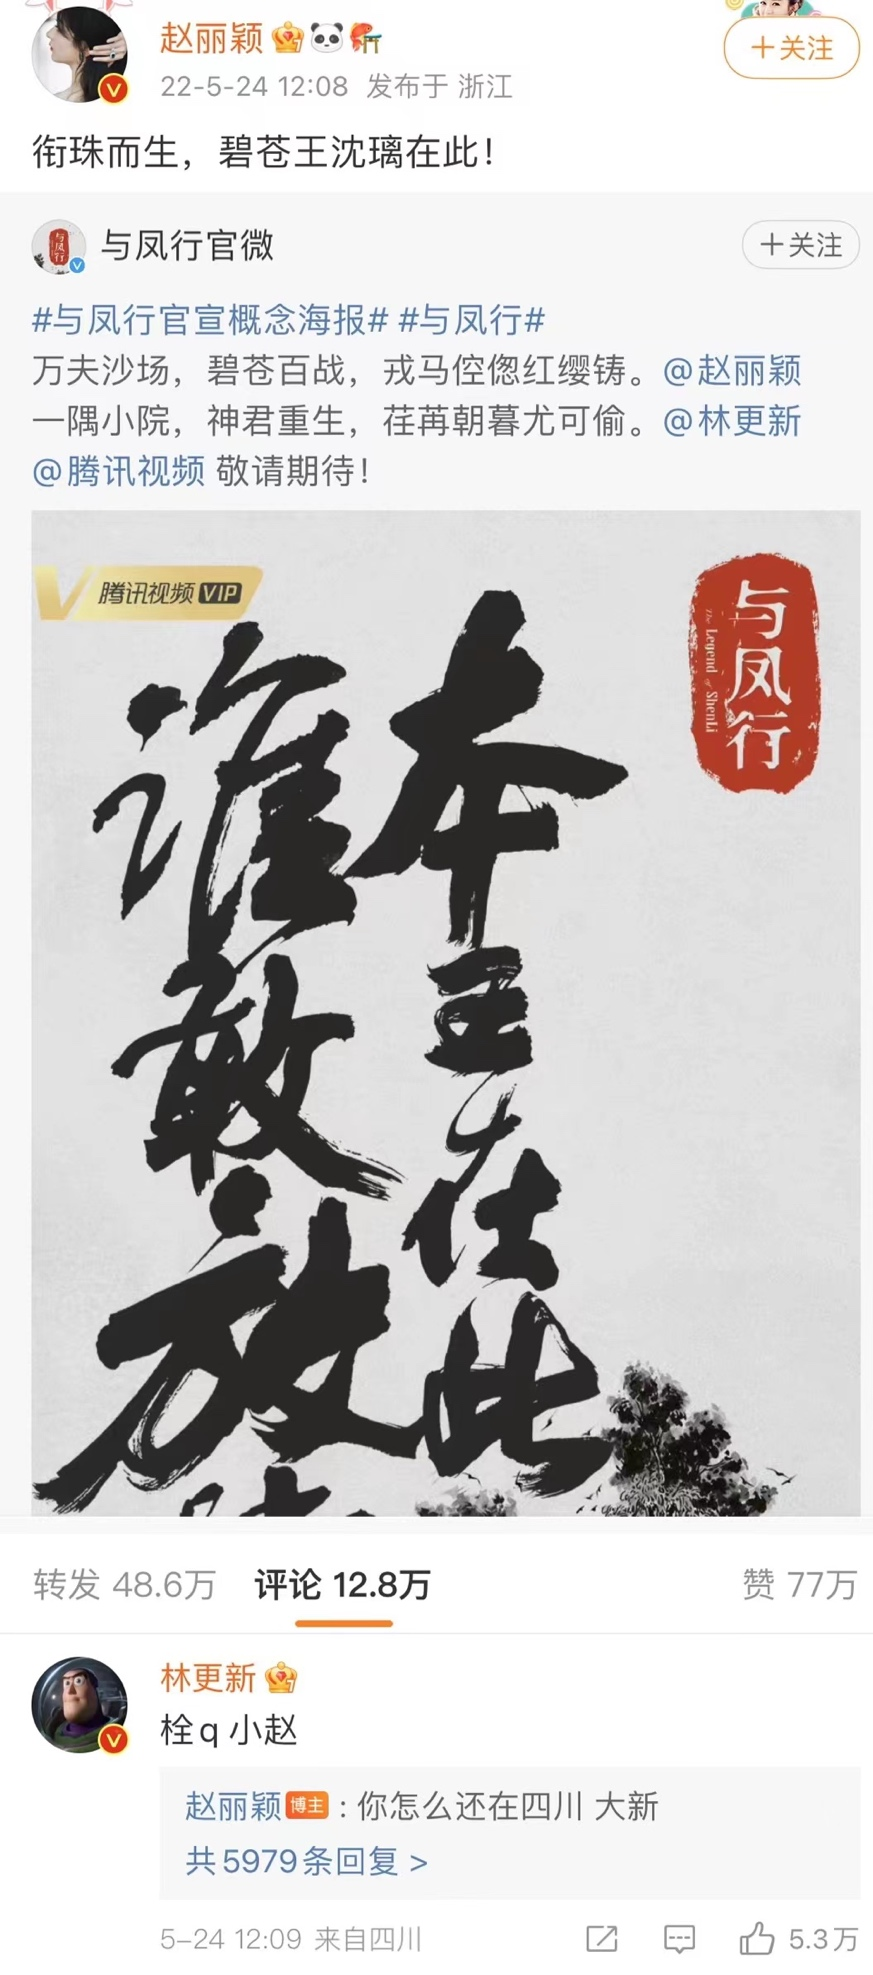 赵丽颖
+关注
22-5-24 12:08 发布于 浙江
衔珠而生，碧苍王沈璃在此！
与凤行官微
+关注
#与凤行官宣概念海报# #与凤行#
万夫沙场，碧苍百战，戎马倥偬红缨铸。@赵丽颖
一隅小院，神君重生，荏苒朝暮尤可偷。@林更新
@腾讯视频 敬请期待！
腾讯视频 VIP
与凤行
The Legend of ShenLi
本王在此
谁敢放
转发 48.6万 评论 12.8万 赞 77万
林更新
栓q 小赵
赵丽颖 博主：你怎么还在四川 大新
共5979条回复 >
5-24 12:09 来自四川 5.3万